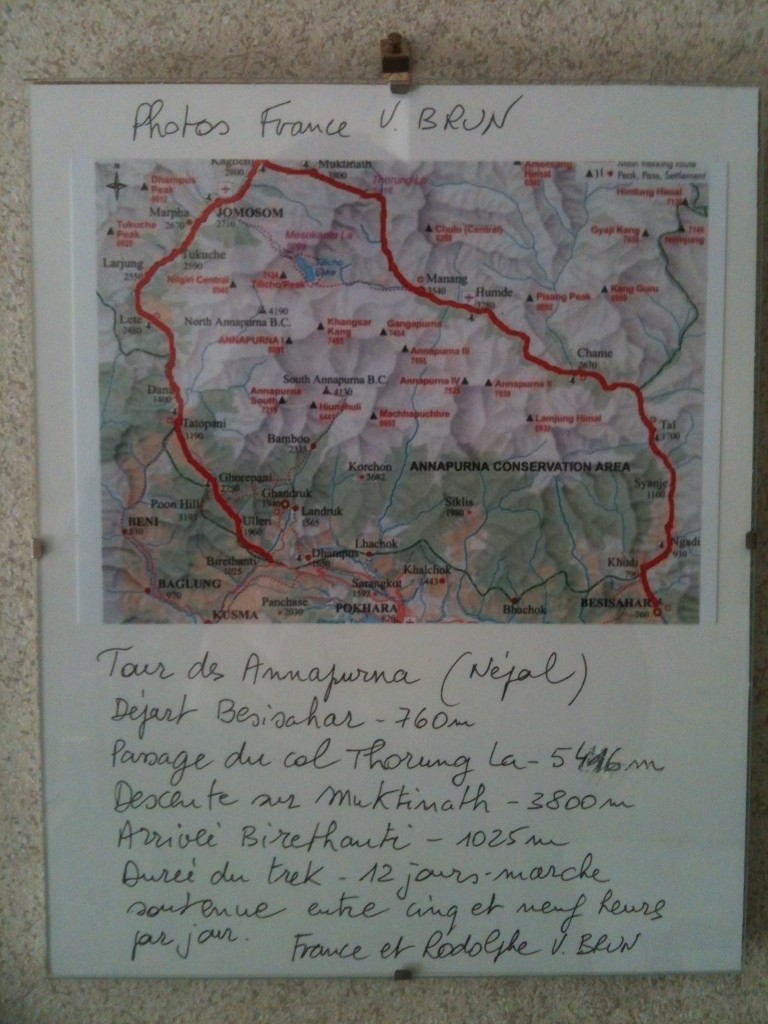 Photos France V. BRUN
Kagbeni
2800
Muktinath
3800
Thorung La
Dhampus
Peak
6012
Main Trekking Route
Peak, Pass, Settlement
Himlung Himal
Marpha
2670
JOMOSOM
2710
Tukuche
Peak
6920
Mesokanto La
Chulu (Central)
Gyaji Kang
Tukuche
2590
Larjung
2550
Tilicho
Lake
7134
Tilicho Peak
Nilgiri Central
6940
Manang
3540
Humde
3280
Pisang Peak
Kang Guru
4190
North Annapurna B.C.
Khangsar
Kang
7485
Gangapurna
7454
Lete
2480
ANNAPURNA I
8091
Annapurna III
7555
Chame
2670
South Annapurna B.C.
4130
Annapurna IV
7525
Annapurna II
Dana
1400
Annapurna
South
7219
Hiunchuli
6441
Machhapuchhre
Lamjung Himal
Tal
1700
Tatopani
1190
Bamboo
2335
ANNAPURNA CONSERVATION AREA
Korchon
3682
Syanje
1100
Ghorepani
2750
Ghandruk
1940
Siklis
1980
Poon Hill
Landruk
1565
BENI
830
Ulleri
1960
Ngadi
910
Lhachok
Birethanti
1025
Dhampus
1650
Khudi
790
Khalchok
1443
BAGLUNG
970
Sarangkot
1592
Panchase
2030
POKHARA
820
Bhachok
BESISAHAR
760
KUSMA
Tour des Annapurna (Népal)
Départ Besisahar - 760m
Passage du col Thorung La - 5416m
Descente sur Muktinath - 3800m
Arrivée Birethanti - 1025m
Durée du trek - 12 jours - marche
soutenue entre cinq et neuf heures
par jour.
France et Rodolphe V. BRUN